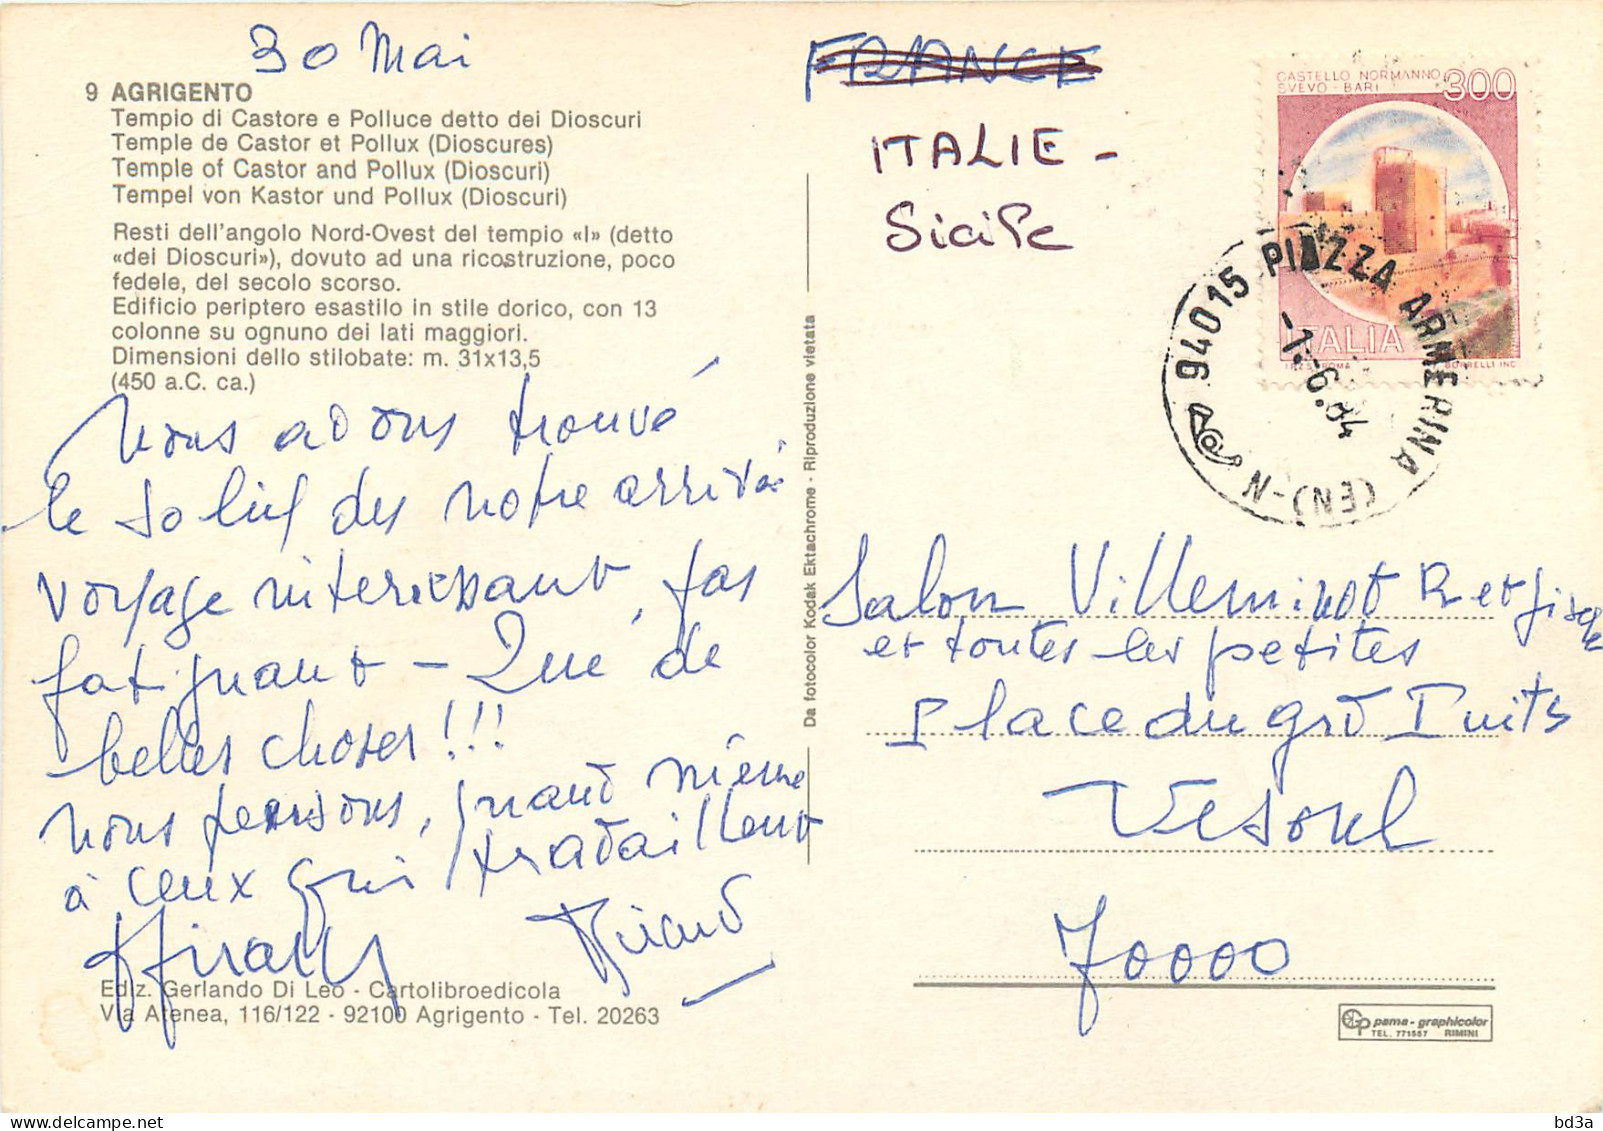 30 Mai
9 AGRIGENTO
Tempio di Castore e Polluce detto dei Dioscuri
Temple de Castor et Pollux (Dioscures)
Temple of Castor and Pollux (Dioscuri)
Tempel von Kastor und Pollux (Dioscuri)
Resti dell'angolo Nord-Ovest del tempio «I» (detto
«dei Dioscuri»), dovuto ad una ricostruzione, poco
fedele, del secolo scorso.
Edificio periptero esastilo in stile dorico, con 13
colonne su ognuno dei lati maggiori.
Dimensioni dello stilobate: m. 31x13,5
(450 a.C. ca.)
Nous avons trouvé
le soleil dès notre arrivée
voyage intéressant, pas
fatiguant - Que de
belles choses!!!
nous pensons, quand même
à ceux qui travaillent
Ediz. Gerlando Di Leo - Cartolibroedicola
Via Atenea, 116/122 - 92100 Agrigento - Tel. 20263
Da fotocolor Kodak Ektachrome - Riproduzione vietata
FRANCE
ITALIE -
Sicile
CASTELLO NORMANNO
SVEVO - BARI
300
ITALIA
I.P.Z.S. ROMA
BORRELLI INC.
94015 PIAZZA ARMERINA (EN)-N
-1.-6.84
Salon Villeminot
et toutes les petites
Place du grd Puits
Vesoul
70000
pama-graphicolor
TEL. 771557 RIMINI
delcampe.net
bd3a